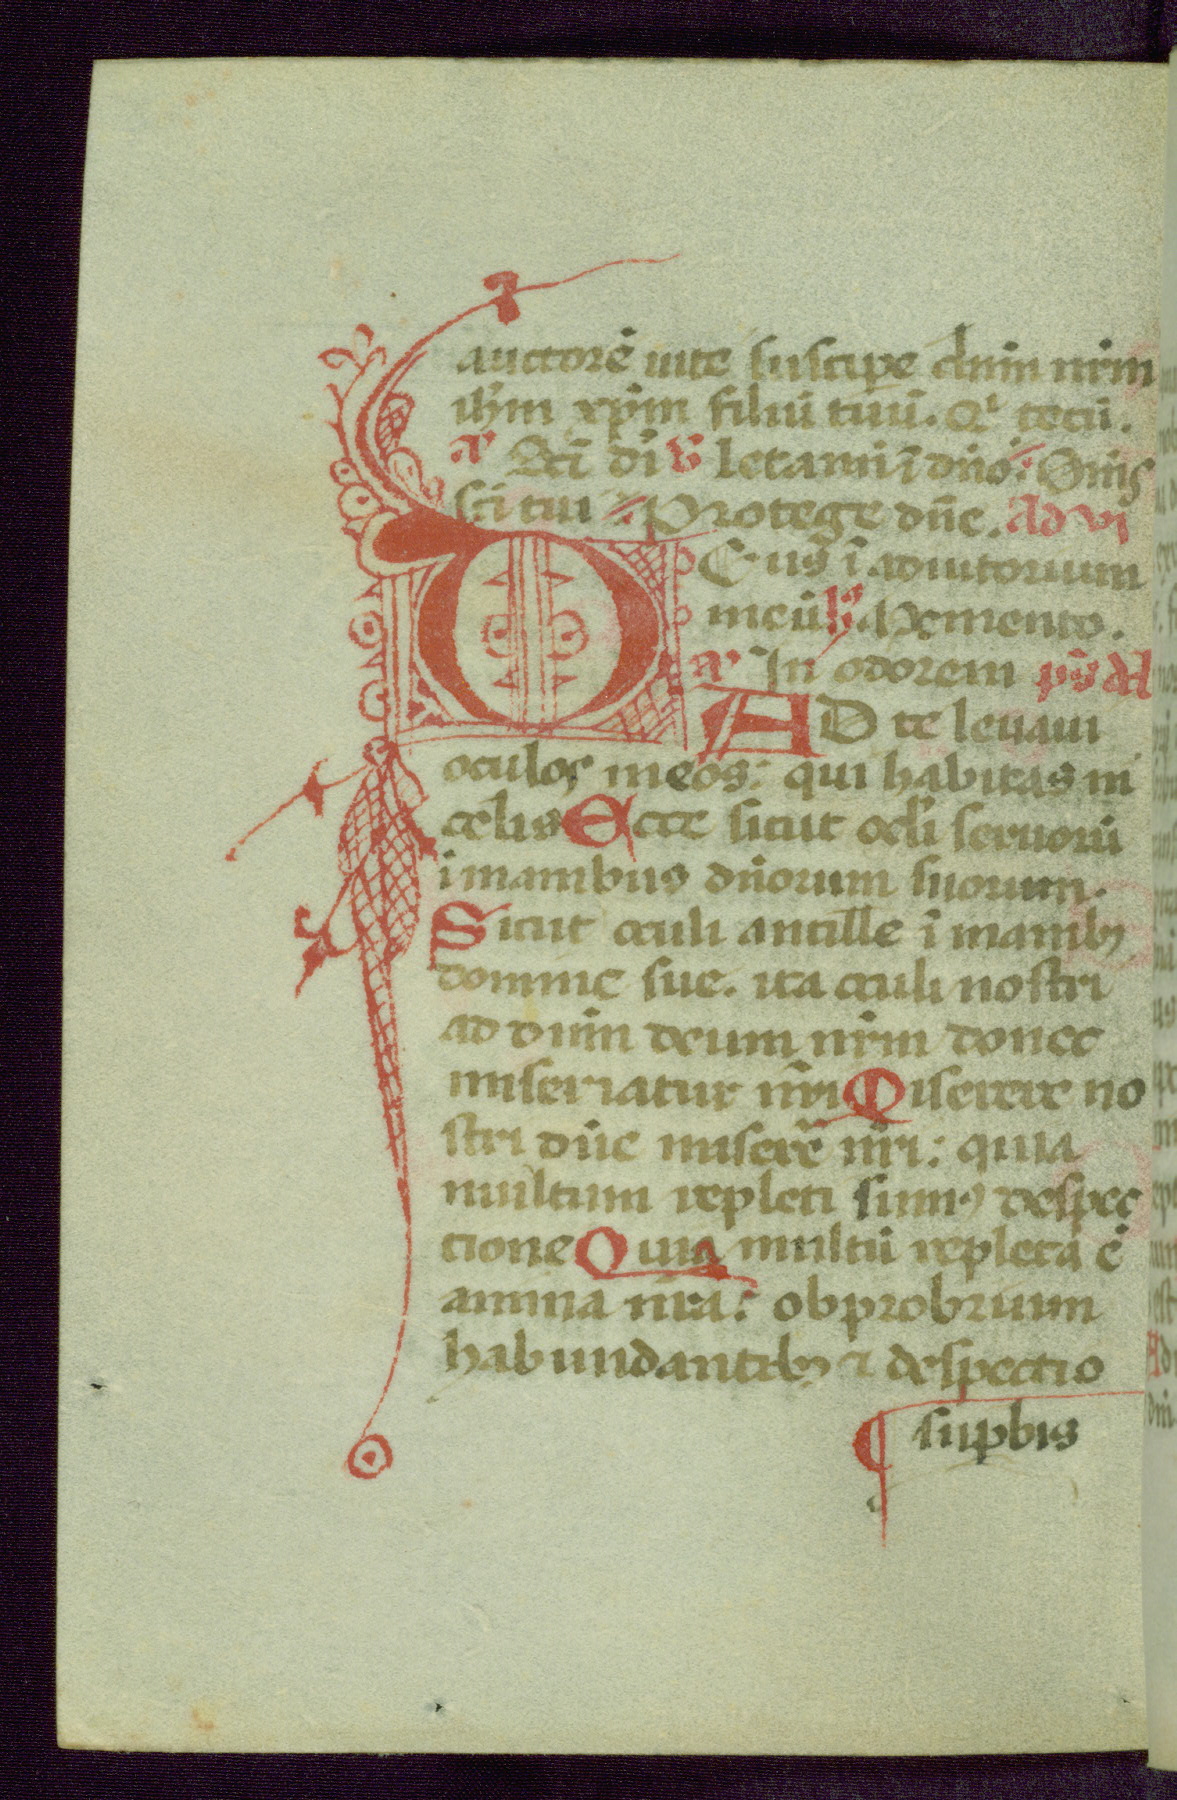 auctorē uite suscipe dnm̄ nr̄m
ihm̄ xpm̄ filiū tuū. Qi tecū.
a Sc̄i di v letamī ī dn̄o. Oīnis
sc̄i tui Protege dn̄e. Ad vi
DEus ī adiutorium
meū h Memento.
a In odorem ps dd
AD te leuaui
oculos meos: qui habitas in
celis Ecce sicut oculi seruorū
ī manibus dn̄orum suorum.
Sicut oculi ancille ī manibꝰ
domine sue. ita oculi nostri
ad dnm̄ deum nr̄m donec
miseriatur nr̄i Miserere no
stri dn̄e miserē nr̄i: quia
multum repleti sumꝰ despec
tione Quia multū repleta ē
anima nr̄a: obprobrium
habundantibꝫ ⁊ despectio
suꝑbis